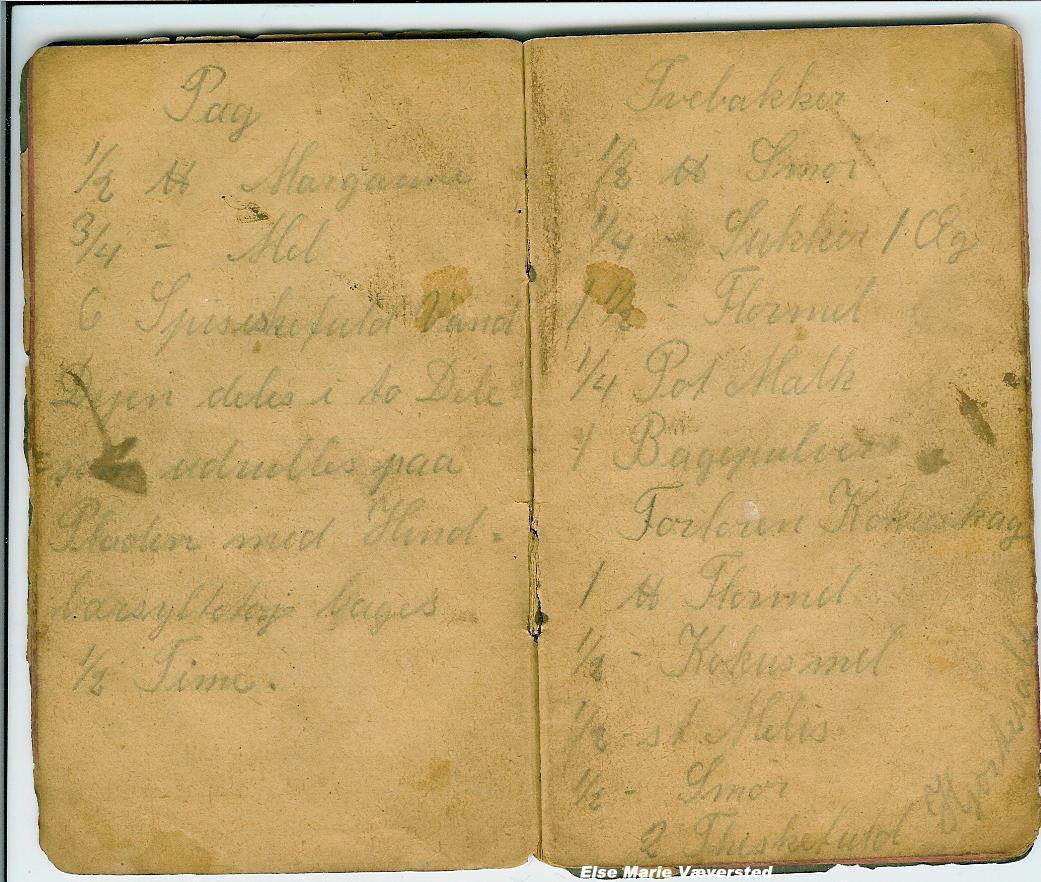 Pag
1/2 ℔ Margarine
3/4 - Mel
6 Spiseskefuld Vand
Dejen deles i to Dele
som udrulles paa
Pladen med Hind-
bærsyltetøj bages
1/2 Time.
Tvebakker
1/2 ℔ Smør
1/4 - Sukker 1 Æg
1 1/2 - Flormel
1/4 Pot Mælk
1 Bagepulver
Forloren Kokuskag
1 ℔ Flormel
1/2 - Kokusmel
1/2 - st Melis
1/2 - Smør
2 Theskefuld Hjortesalt
Else Marie Væversted